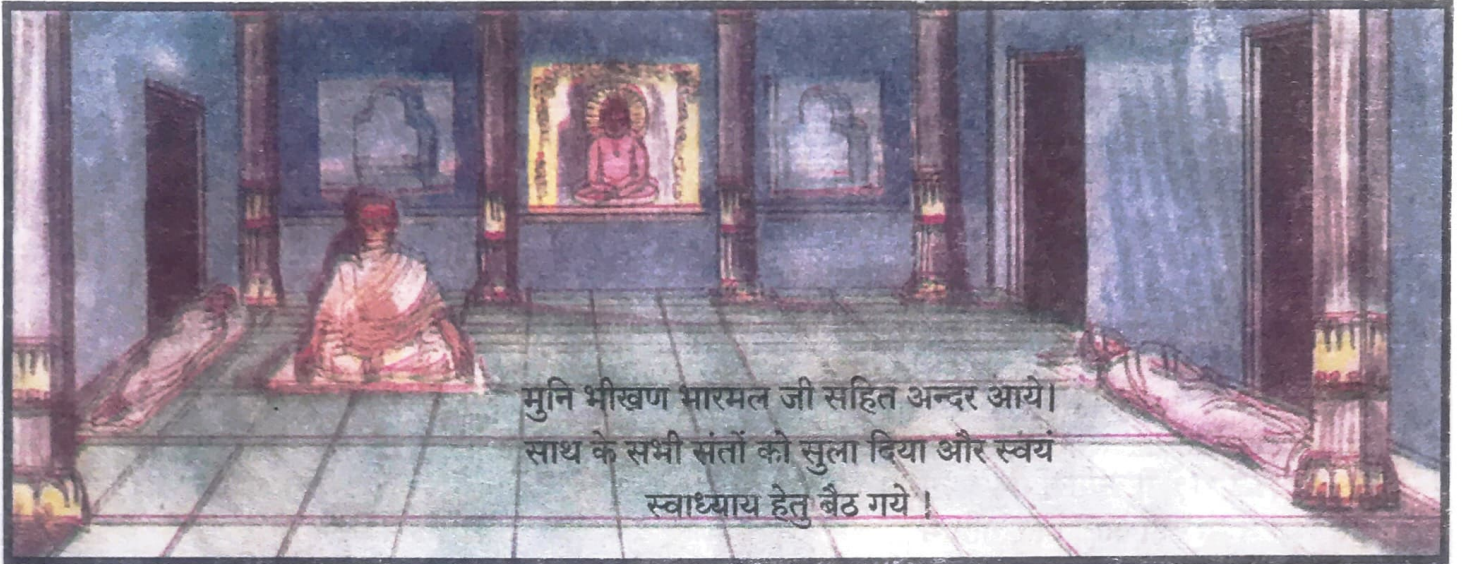 मुनि भीखण भारमल जी सहित अन्दर आये।
साथ के सभी संतों को सुला दिया और स्वयं
स्वाध्याय हेतु बैठ गये !